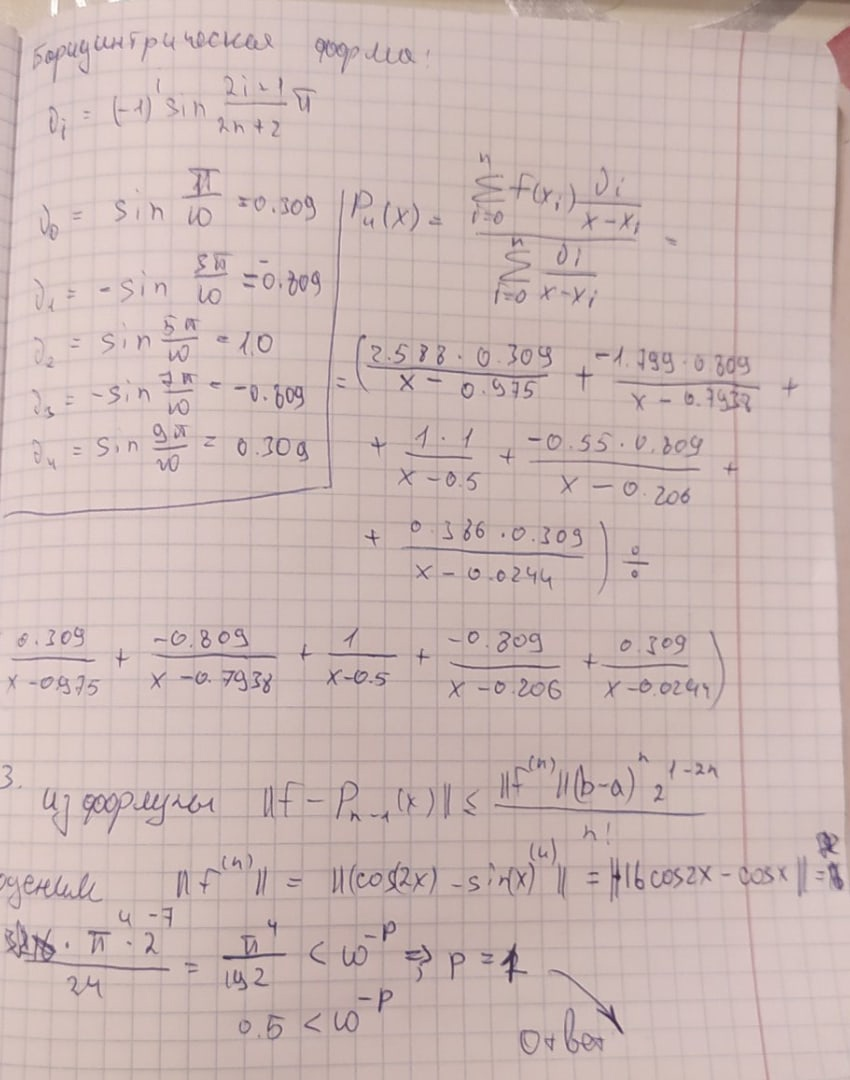 Барицинтрическая форма:
∂ᵢ = (-1)ⁱ sin (2i-1)/(2n+2) π
∂₀ = sin π/10 = 0.309
∂₁ = -sin 3π/10 = -0.809
∂₂ = sin 5π/10 = 1.0
∂₃ = -sin 7π/10 = -0.809
∂₄ = sin 9π/10 = 0.309
P₄(x) = (∑ⁿᵢ₌₀ f(xᵢ) ∂ᵢ/(x-xᵢ)) / (∑ⁿᵢ₌₀ ∂ᵢ/(x-xᵢ)) =
= ( (2.588 · 0.309)/(x - 0.975) + (-1.799 · 0.809)/(x - 0.7938) +
+ (1 · 1)/(x - 0.5) + (-0.55 · 0.809)/(x - 0.206) +
+ (0.386 · 0.309)/(x - 0.0244) ) ÷
0.309/(x - 0.975) + -0.809/(x - 0.7938) + 1/(x - 0.5) + -0.809/(x - 0.206) + 0.309/(x - 0.0244) )
3. Из формулы ||f - Pₙ₋₁(x)|| ≤ (||f⁽ⁿ⁾||(b-a)ⁿ 2¹⁻²ⁿ)/n!
оценим ||f⁽ⁿ⁾|| = ||(cos(2x) - sin(x))⁽⁴⁾|| = ||16cos2x - cosx|| =
· π⁴ · 2⁻⁷ / 24 = π⁴/192 < 10⁻ᵖ ⇒ p = 1
0.5 < 10⁻ᵖ
Ответ